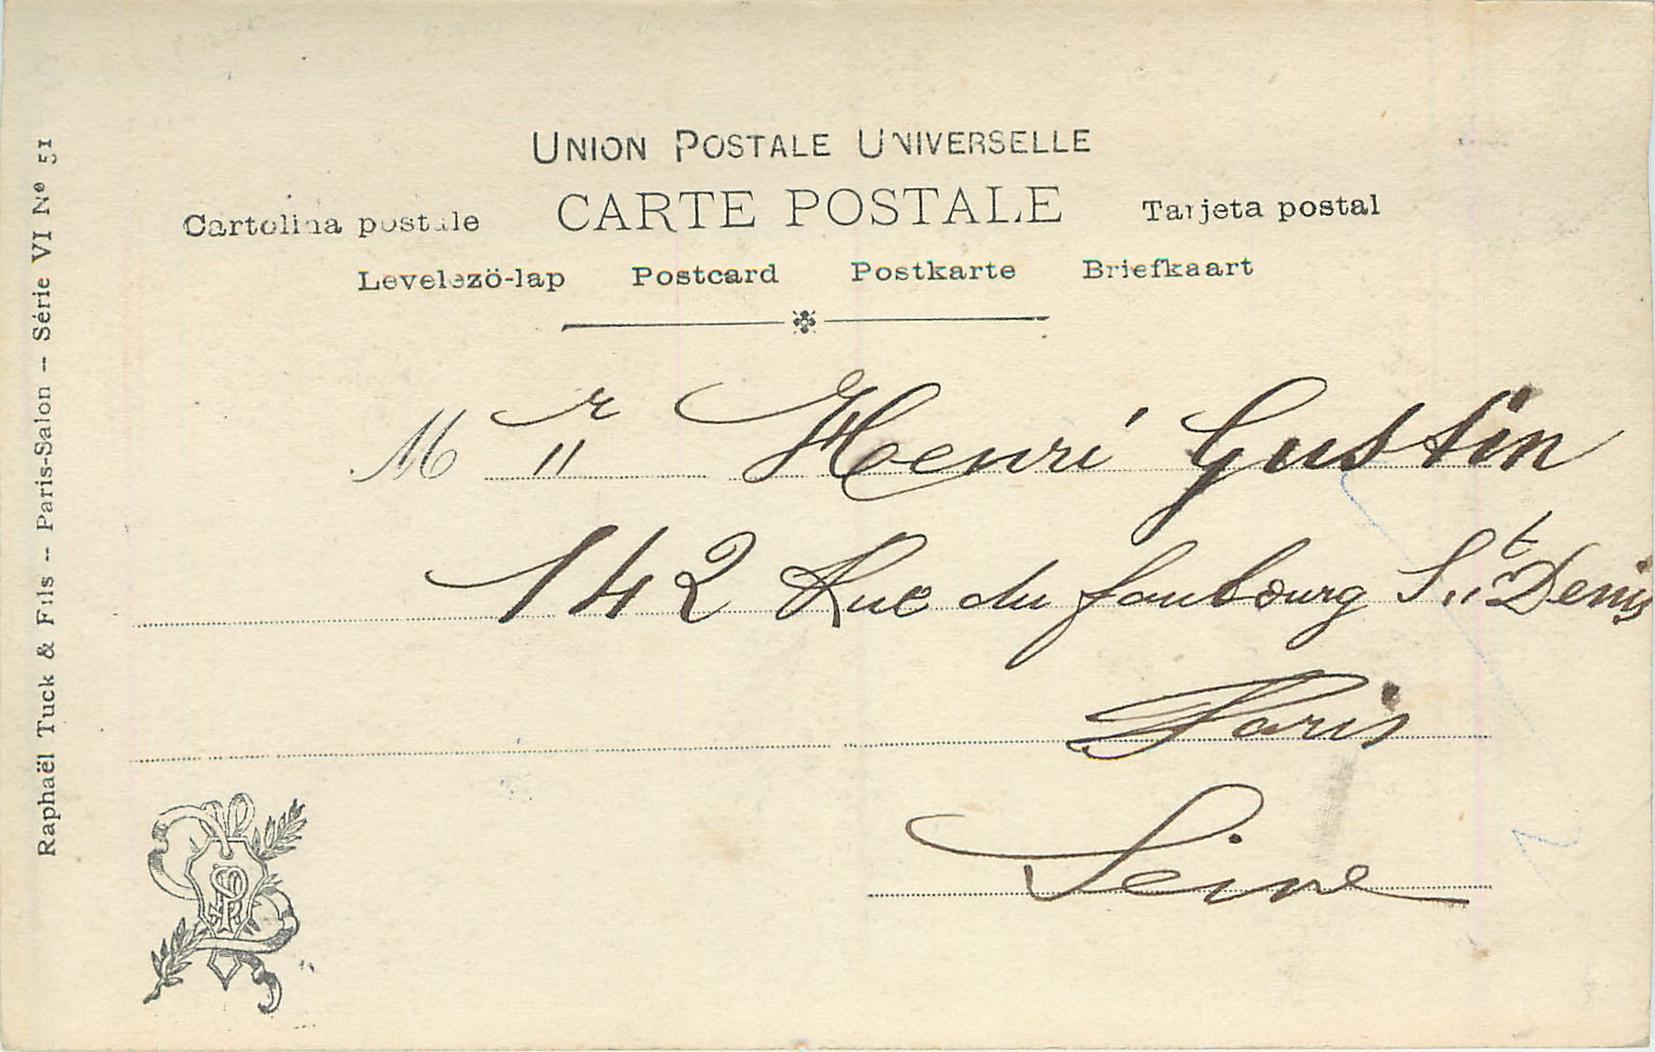 UNION POSTALE UNIVERSELLE
Cartolina postale CARTE POSTALE Tarjeta postal
Levelezö-lap Postcard Postkarte Briefkaart
Mr Henri Gustin
142 Rue du faubourg St Denis
Paris
Seine
Raphaël Tuck & Fils -- Paris-Salon -- Série VI Nº 51